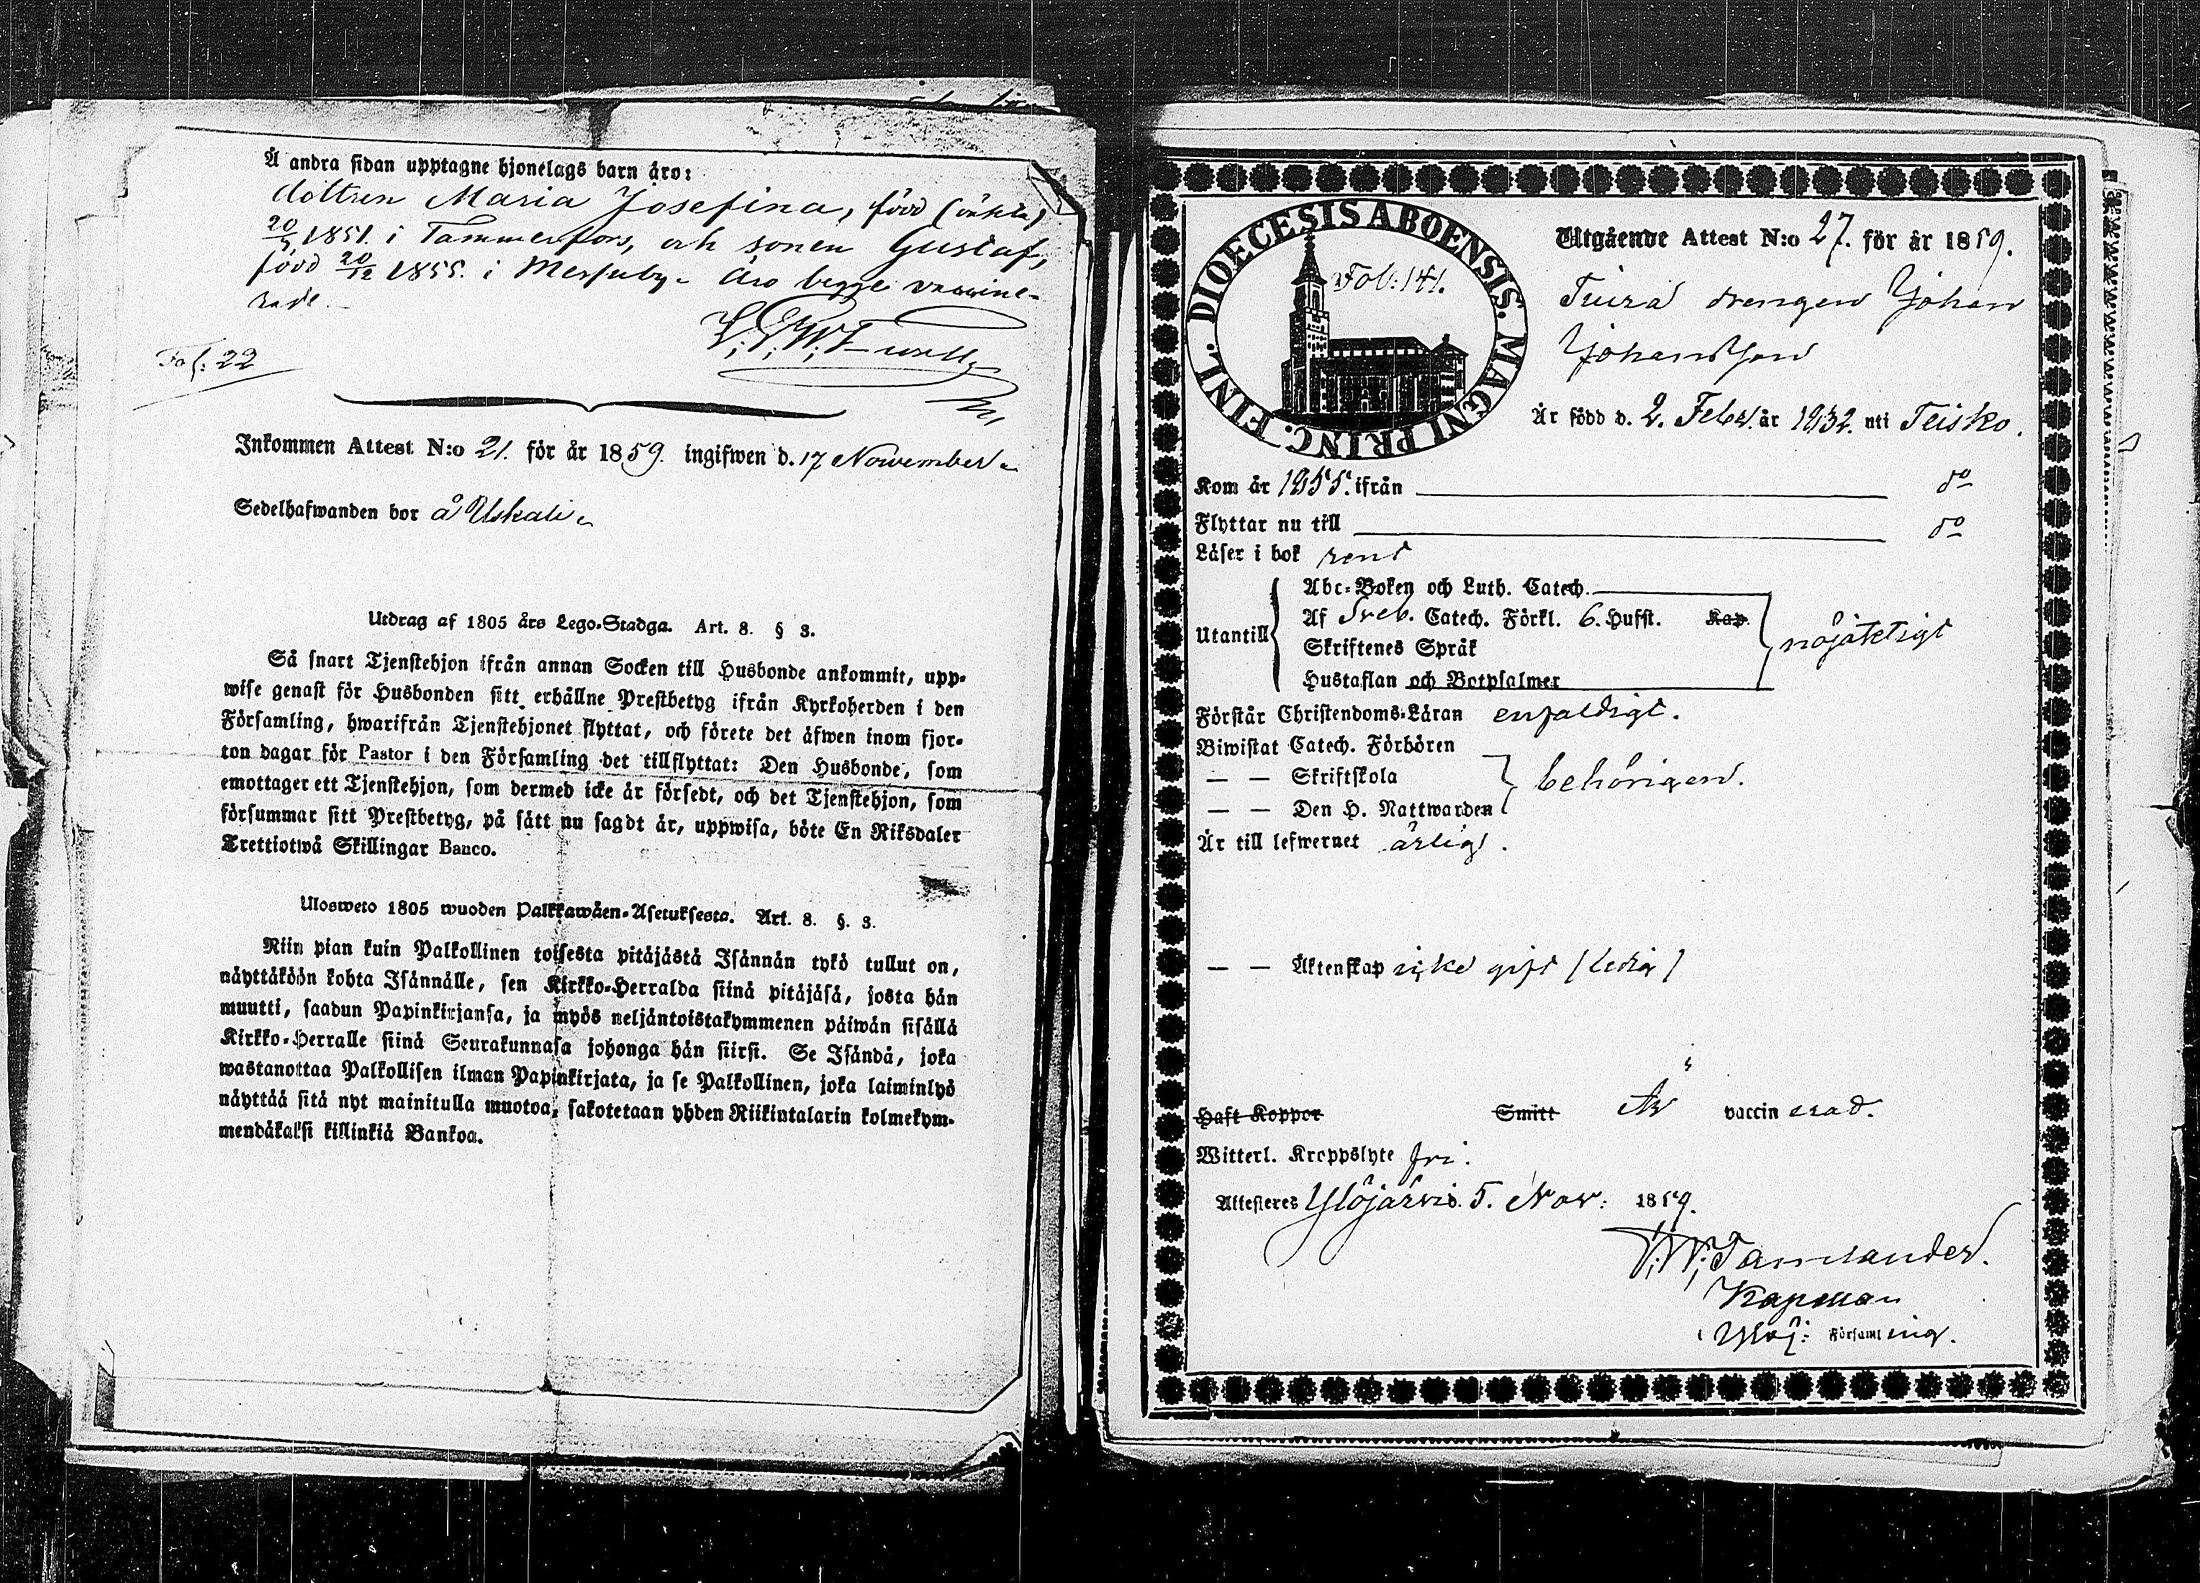 Å andra sidan upptagne hjonelags barn äro:
dottren Maria Josefina, född (oäkta)
20/7 1851. i Tammerfors, och sonen Gustaf,
född 20/12 1855. i Messuby. Äro begge vaccine-
rade.
Fol: 22
Inkommen Attest N:o 21. för år 1859. ingifwen d. 17 November
Sedelhafwanden bor å Uskali
Utdrag af 1805 års Lego-Stadga. Art. 8. § 3.
Så snart Tjenstehjon ifrån annan Socken till Husbonde ankommit, upp-
wise genast för Husbonden sitt erhållne Prestbetyg ifrån Kyrkoherden i den
Församling, hwarifrån Tjenstehjonet flyttat, och förete det äfwen inom fjor-
ton dagar för Pastor i den Församling det tillflyttat: Den Husbonde, som
emottager ett Tjenstehjon, som dermed icke är försedt, och det Tjenstehjon, som
försummar sitt Prestbetyg, på sätt nu sagdt är, uppwisa, böte En Riksdaler
Trettiotwå Skillingar Banco.
Ulosweto 1805 wuoden Palkkawäen-Asetuksesta. Art. 8. §. 3.
Niin pian kuin Palkollinen toisesta pitäjästä Isännän tykö tullut on,
näyttäköön kohta Isännälle, sen Kirkko-Herralda siinä pitäjäsä, josta hän
muutti, saadun Papinkirjansa, ja myös neljäntoistakymmenen päiwän sisällä
Kirkko-Herralle siinä Seurakunnasa johonga hän siirsi. Se Isändä, joka
wastanottaa Palkollisen ilman Papinkirjata, ja se Palkollinen, joka laiminlyö
näyttää sitä nyt mainitulla muotoa, sakotetaan yhden Riikintalarin kolmekym-
mendäkaksi killinkiä Bankoa.
DIOECESIS ABOENSIS. MAGNI PRINC. FINL.
Fol: 141.
Utgående Attest N:o 27. för år 1859.
drengen Johan
Johansson
Är född d. 2. Febr. år 1832. uti Teisko.
Kom år 1855. ifrån do
Flyttar nu till do
Läser i bok rent
Utantill
Abc-Boken och Luth. Catech.
Af Sveb. Catech. Förkl. 6. Hufst. Kap.
Skriftenes Språk
Hustaflan och Botpsalmer
nöjaktigt
Förstår Christendoms-Läran enfaldigt.
Biwistat Catech. Förhören
— — Skriftskola
— — Den H. Nattwarden
behörigen.
Är till lefwernet ärlig.
— — Äktenskap icke gift (ledig)
Haft Koppor Smitt Är vaccinerad.
Witterl. Kroppslyte fri.
Attesteres Ylöjärvis. 5. Nov: 1859.
Kapellan
i Ylöj: Församling.